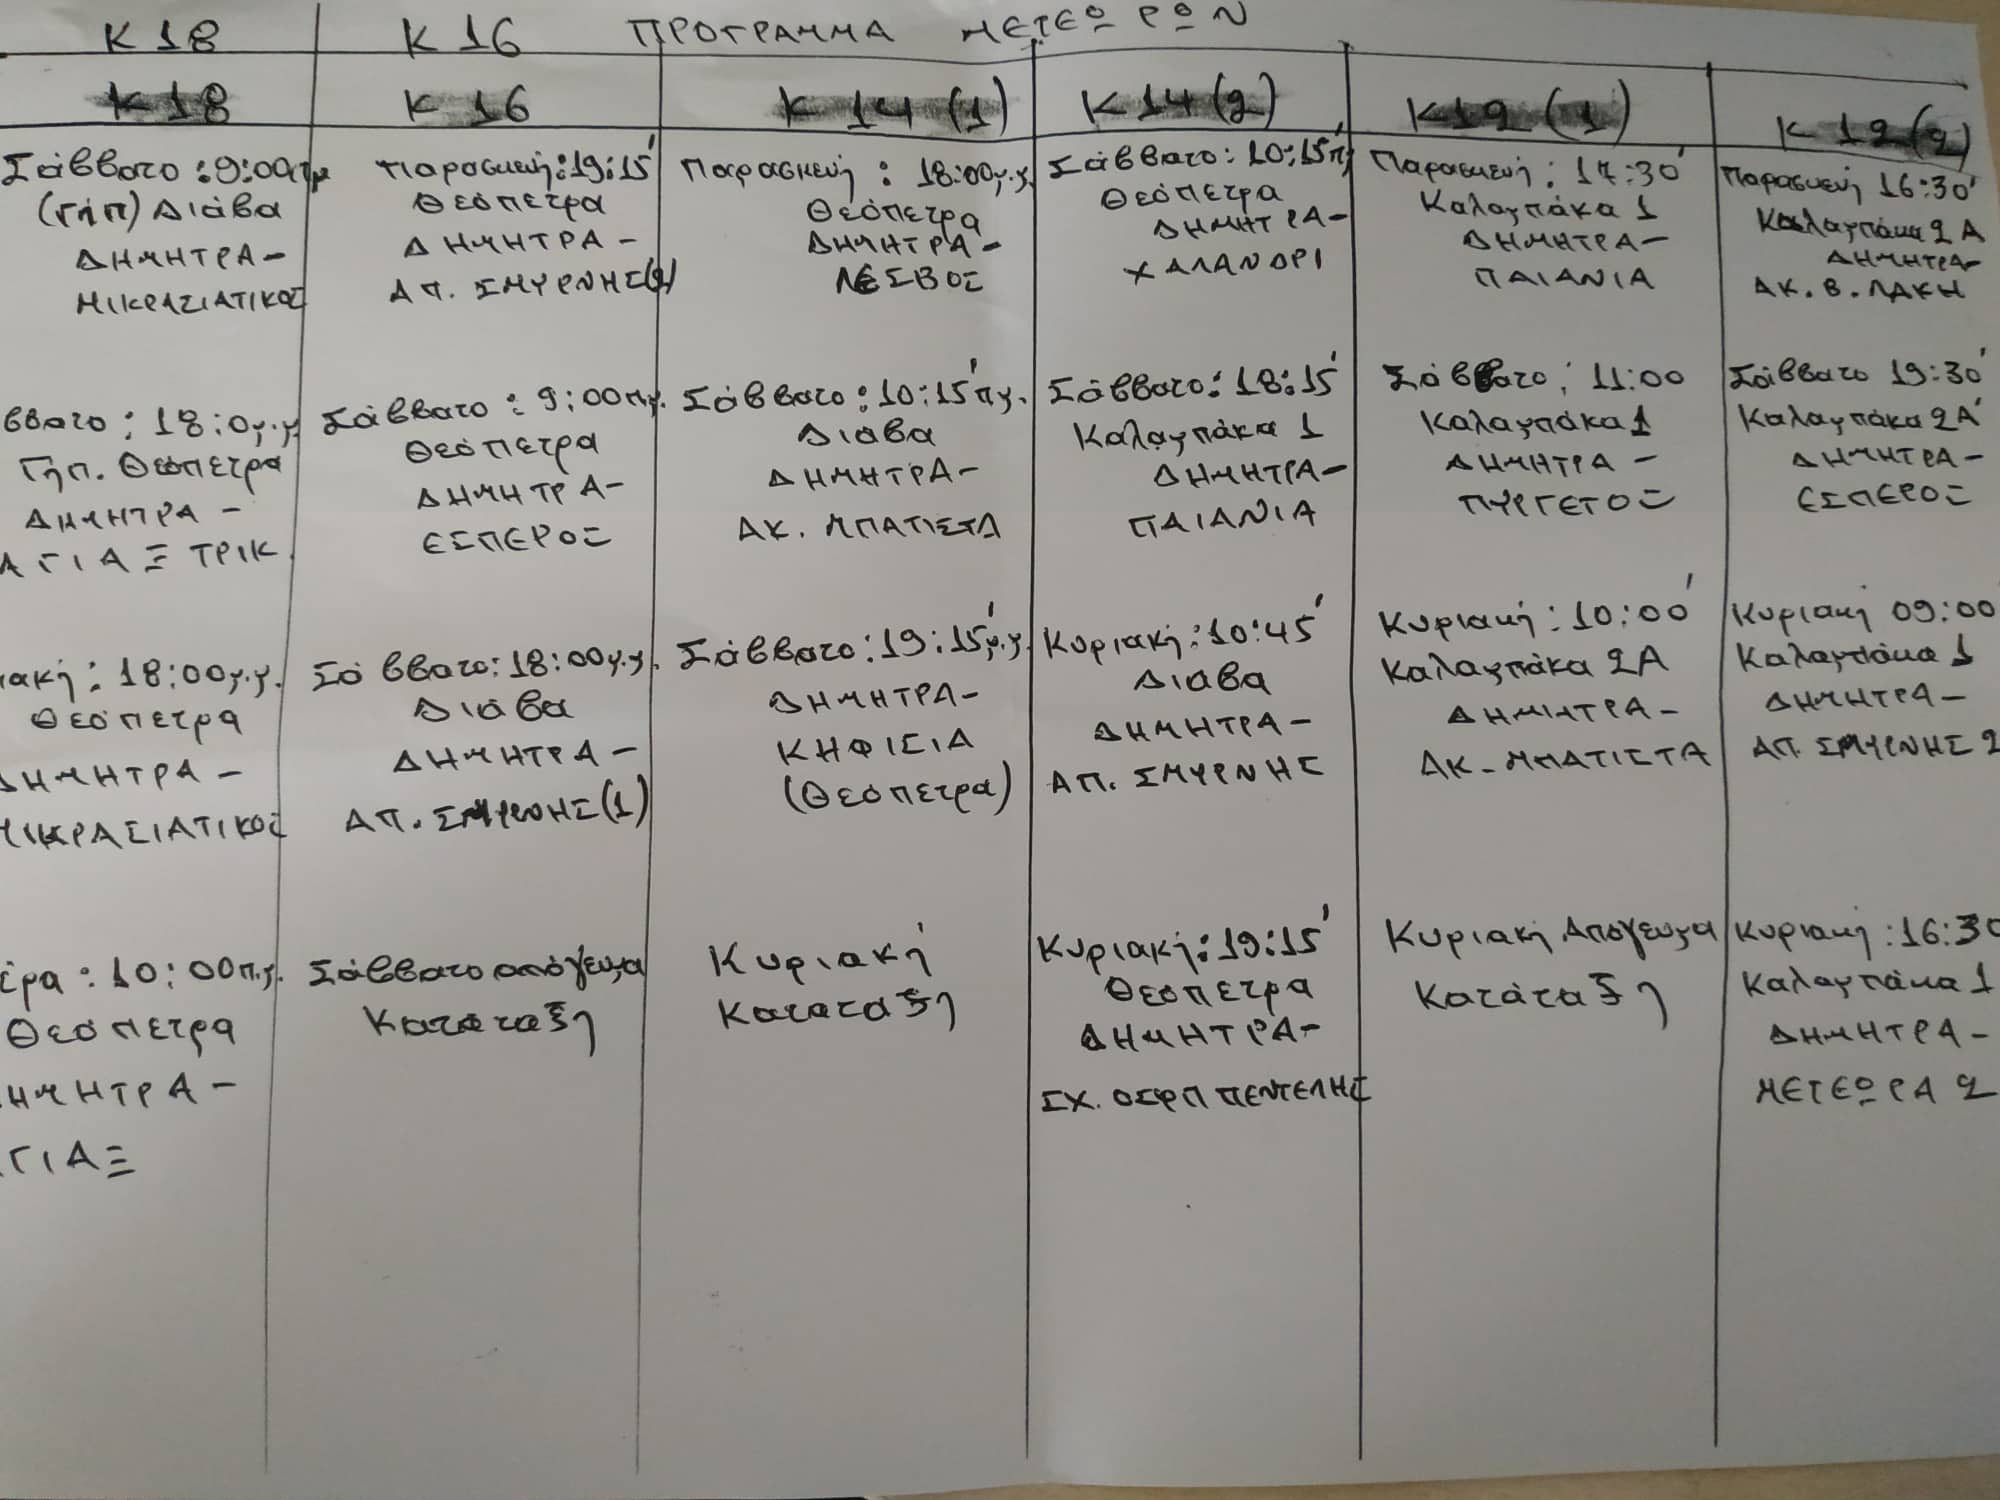 Κ18 Κ16 ΠΡΟΓΡΑΜΜΑ ΜΕΤΕΩΡΩΝ
Κ18 Κ16 Κ14(1) Κ14(2) Κ12(1) Κ12(2)
Σάββατο: 9:00πμ
(Γήπ) Διάβα
ΔΗΜΗΤΡΑ-
ΜΙΚΡΑΣΙΑΤΙΚΟΣ
ββατο: 18:0μ.μ.
Γήπ. Θεόπετρα
ΔΗΜΗΤΡΑ -
ΑΓΙΑΞ ΤΡΙΚ.
ιακή: 18:00μ.μ.
Θεόπετρα
ΔΗΜΗΤΡΑ -
ΜΙΚΡΑΣΙΑΤΙΚΟΣ
έρα: 10:00π.μ.
Θεόπετρα
ΗΜΗΤΡΑ -
ΓΙΑΞ
Παρασκευή:19:15'
Θεόπετρα
ΔΗΜΗΤΡΑ -
ΑΠ. ΣΜΥΡΝΗΣ(2)
Σάββατο: 9:00πμ.
Θεόπετρα
ΔΗΜΗΤΡΑ-
ΕΣΠΕΡΟΣ
Σάββατο: 18:00μ.μ.
Διάβα
ΔΗΜΗΤΡΑ -
ΑΠ. ΣΜΥΡΝΗΣ(1)
Σάββατο απόγευμα
Κατάταξη
Παρασκευή: 18:00μ.μ.
Θεόπετρα
ΔΗΜΗΤΡΑ -
ΛΕΣΒΟΣ
Σάββατο: 10:15'πμ.
Διάβα
ΔΗΜΗΤΡΑ-
ΑΚ. ΜΠΑΤΙΣΤΑ
Σάββατο: 19:15'μ.μ.
ΔΗΜΗΤΡΑ-
ΚΗΦΙΣΙΑ
(Θεόπετρα)
Κυριακή
Κατάταξη
Σάββατο: 10:15'π
Θεόπετρα
ΔΗΜΗΤΡΑ-
ΧΑΛΑΝΔΡΙ
Σάββατο: 18:15'
Καλαμπάκα 1
ΔΗΜΗΤΡΑ-
ΠΑΙΑΝΙΑ
Κυριακή: 10:45'
Διάβα
ΔΗΜΗΤΡΑ-
ΑΠ. ΣΜΥΡΝΗΣ
Κυριακή: 19:15'
Θεόπετρα
ΔΗΜΗΤΡΑ-
ΣΧ. ΟΣΦΠ ΠΕΝΤΕΛΗΣ
Παρασκευή: 17:30'
Καλαμπάκα 1
ΔΗΜΗΤΡΑ-
ΠΑΙΑΝΙΑ
Σάββατο: 11:00
Καλαμπάκα 1
ΔΗΜΗΤΡΑ -
ΠΥΡΓΕΤΟΣ
Κυριακή: 10:00'
Καλαμπάκα 2Α
ΔΗΜΗΤΡΑ-
ΑΚ-ΜΠΑΤΙΣΤΑ
Κυριακή Απόγευμα
Κατάταξη
Παρασκευή 16:30'
Καλαμπάκα 2Α
ΔΗΜΗΤΡΑ-
ΑΚ. Β. ΛΑΚΗ
Σάββατο 19:30'
Καλαμπάκα 2Α'
ΔΗΜΗΤΡΑ-
ΕΣΠΕΡΟΣ
Κυριακή 09:00
Καλαμπάκα 1
ΔΗΜΗΤΡΑ-
ΑΠ. ΣΜΥΡΝΗΣ 2
Κυριακή: 16:30
Καλαμπάκα 1
ΔΗΜΗΤΡΑ-
ΜΕΤΕΩΡΑ 2